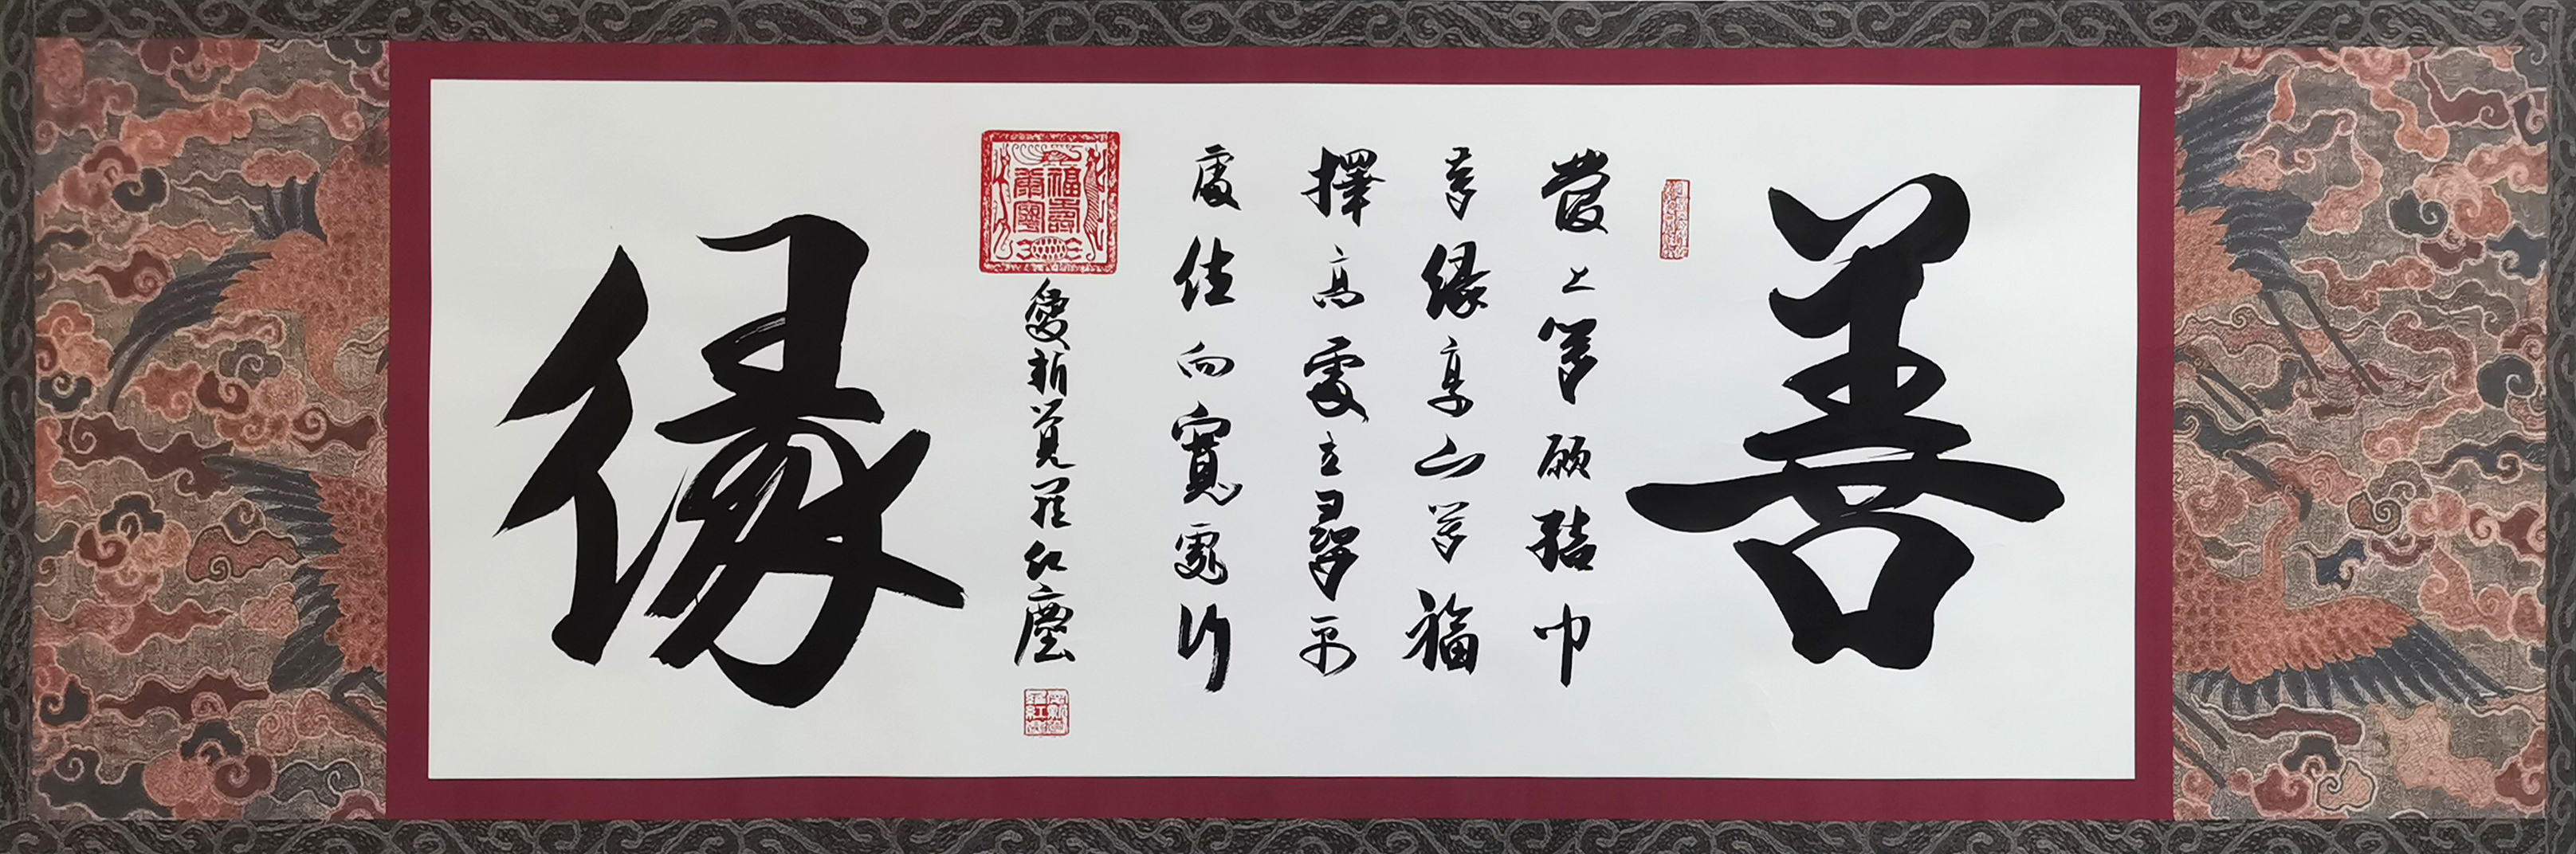 善
發上等願結中
等緣享下等福
擇高處立尋平
處住向寬處行
福壽康寧
愛新覺羅紅塵
緣